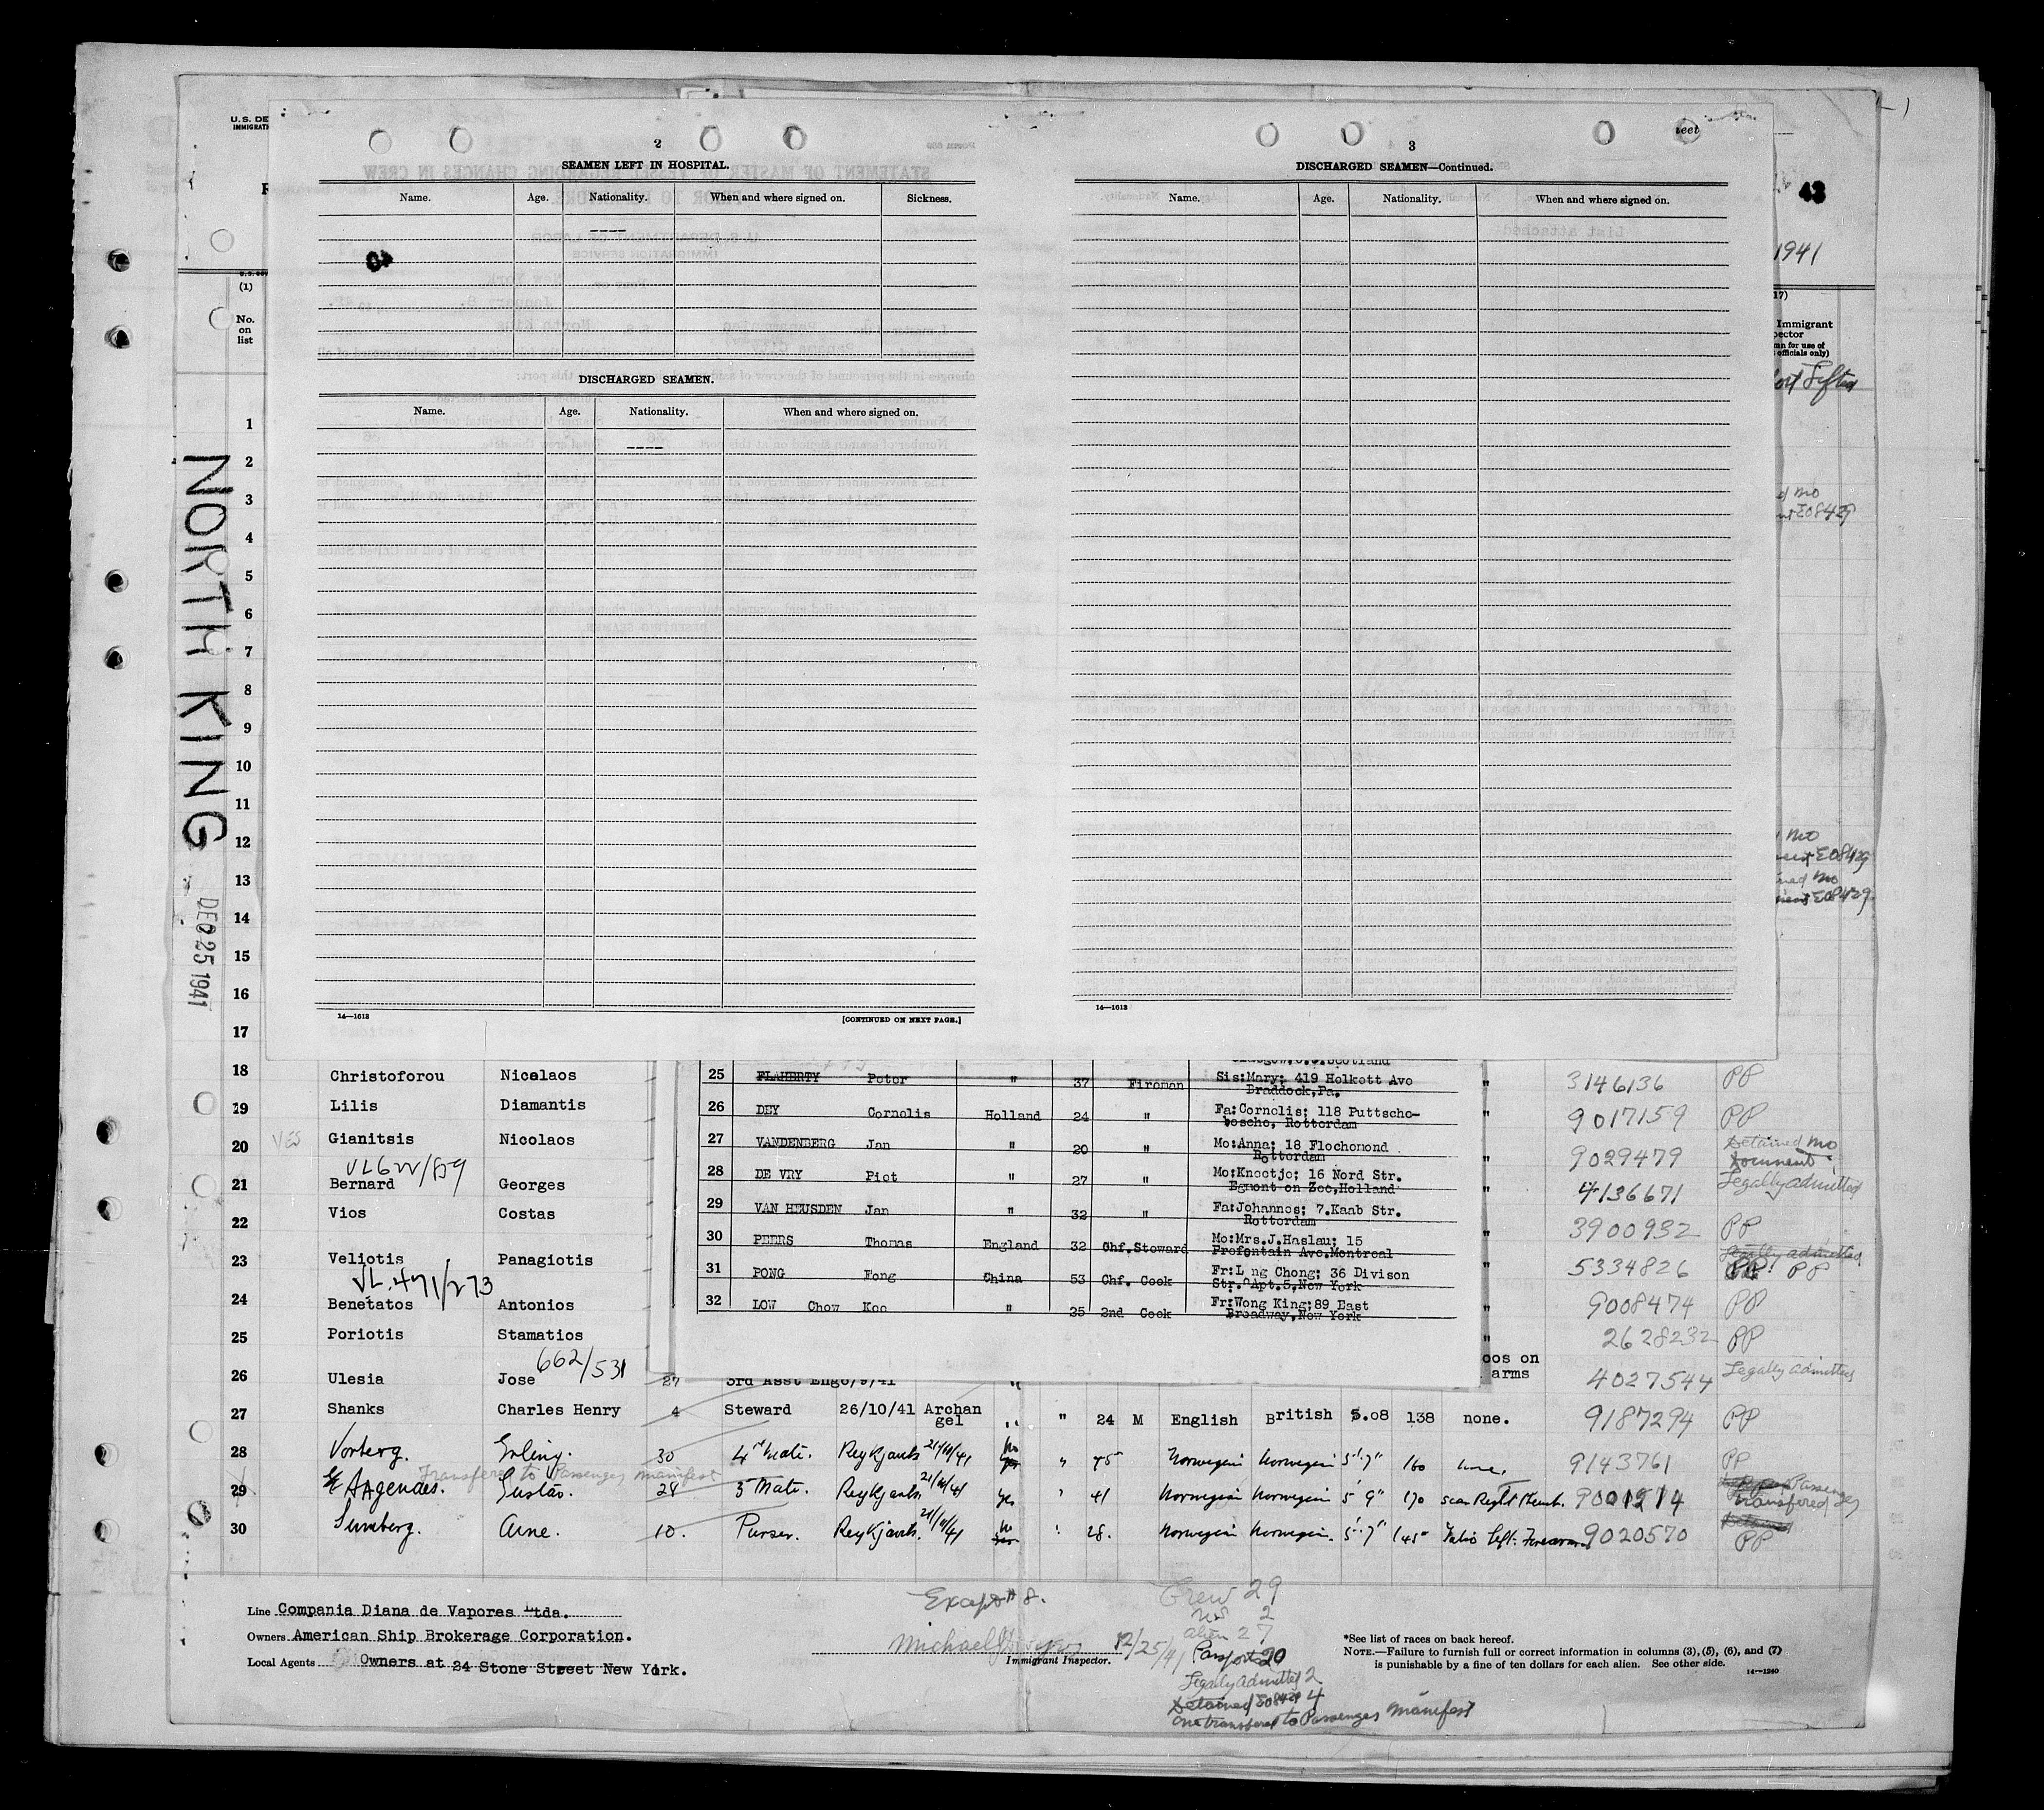 U.S. DE
IMMIGRATI
2
SEAMEN LEFT IN HOSPITAL.
Name. Age. Nationality. When and where signed on. Sickness.
----
DISCHARGED SEAMEN.
Name. Age. Nationality. When and where signed on.
----
14—1613 [CONTINUED ON NEXT PAGE.]
3
DISCHARGED SEAMEN—Continued.
Name. Age. Nationality. When and where signed on.
14—1613
eet
43
1941
17)
Immigrant
pector
mn for use of
officials only)
d no
nt E08429
no
E08429
ned no
E08429
NORTH KING
DEC 25 1941
(1)
No.
on
list
1
2
3
4
5
6
7
8
9
10
11
12
13
14
15
16
17
18 Christoforou Nicolaos
19 Lilis Diamantis
20 YES Gianitsis Nicolaos
VL622/159
21 Bernard Georges
22 Vios Costas
23 Veliotis Panagiotis
VL.471/273
24 Benetatos Antonios
25 Poriotis Stamatios
662/531
26 Ulesia Jose 27 3rd Asst Eng 6/9/41
27 Shanks Charles Henry 4 Steward 26/10/41 Archan gel " " 24 M English British 5.08 138 none. 9187294 PP
28 Vorberg. Erling. 30 4th Mate. Reykjavik 21/11/41 No " 45 Norwegian Norwegian 5'.7" 160 none. 9143761 PP
Transfered to Passenger Manifest
29 Aagendes. Gustav. 24 3 Mate. Reykjavik 21/11/41 Yes " 41 Norwegian Norwegian 5' 9" 170 scar Right thumb. 9001214 Transfered Passenger
30 Sundberg. Arne. 10. Purser. Reykjavik. 21/11/41 No " 28. Norwegian Norwegian. 5'.7" 145 Tatto Left: Forearm 9020570 Detained PP
Glasgow,C.5.Scotland
25 FLAHERTY Peter " 37 Fireman Sis:Mary; 419 Holkett Ave
Braddock,Pa.
26 DEY Cornelis Holland 24 " Fa:Cornelis; 118 Puttscho-
boscho, Rotterdam
27 VANDENBERG Jan " 20 " Mo:Anna; 18 Flochomond
Rotterdam
28 DE VRY Piet " 27 " Mo:Knoetje; 16 Nord Str.
Egmont on Zee,Holland
29 VAN HEUSDEN Jan " 32 " Fa:Johannes; 7.Kaab Str.
Rotterdam
30 PEERS Thomas England 32 Chf.Steward Mo:Mrs.J.Haslau; 15
Profontain Ave.Montreal
31 PONG Fong China 53 Chf. Cook Fr:L ng Chong; 36 Divison
Str. Apt.5,New York
32 LOW Chow Koo " 25 2nd Cook Fr:Wong King;89 East
Broadway,New York
" 3146136 PP
" 9017159 PP
" 9029479 Detained no
Document
" 4136671 Legally admitted
" 3900932 PP
" 5334826 Legally admitted PP
" 9008474 PP
" 2628232 PP
oos on
arms 4027544 Legally admitted
Line Compania Diana de Vapores Ltda.
Owners American Ship Brokerage Corporation.
Local Agents Owners at 24 Stone Street New York.
Except # 8.
Michael 12/25/41
Immigrant Inspector.
Crew 29
US 2
alien 27
Passport 20
Legally Admitted 2
Detained E08429 4
One transfered to Passenger Manifest
*See list of races on back hereof.
NOTE.—Failure to furnish full or correct information in columns (3), (5), (6), and (7)
is punishable by a fine of ten dollars for each alien. See other side.
14—1240